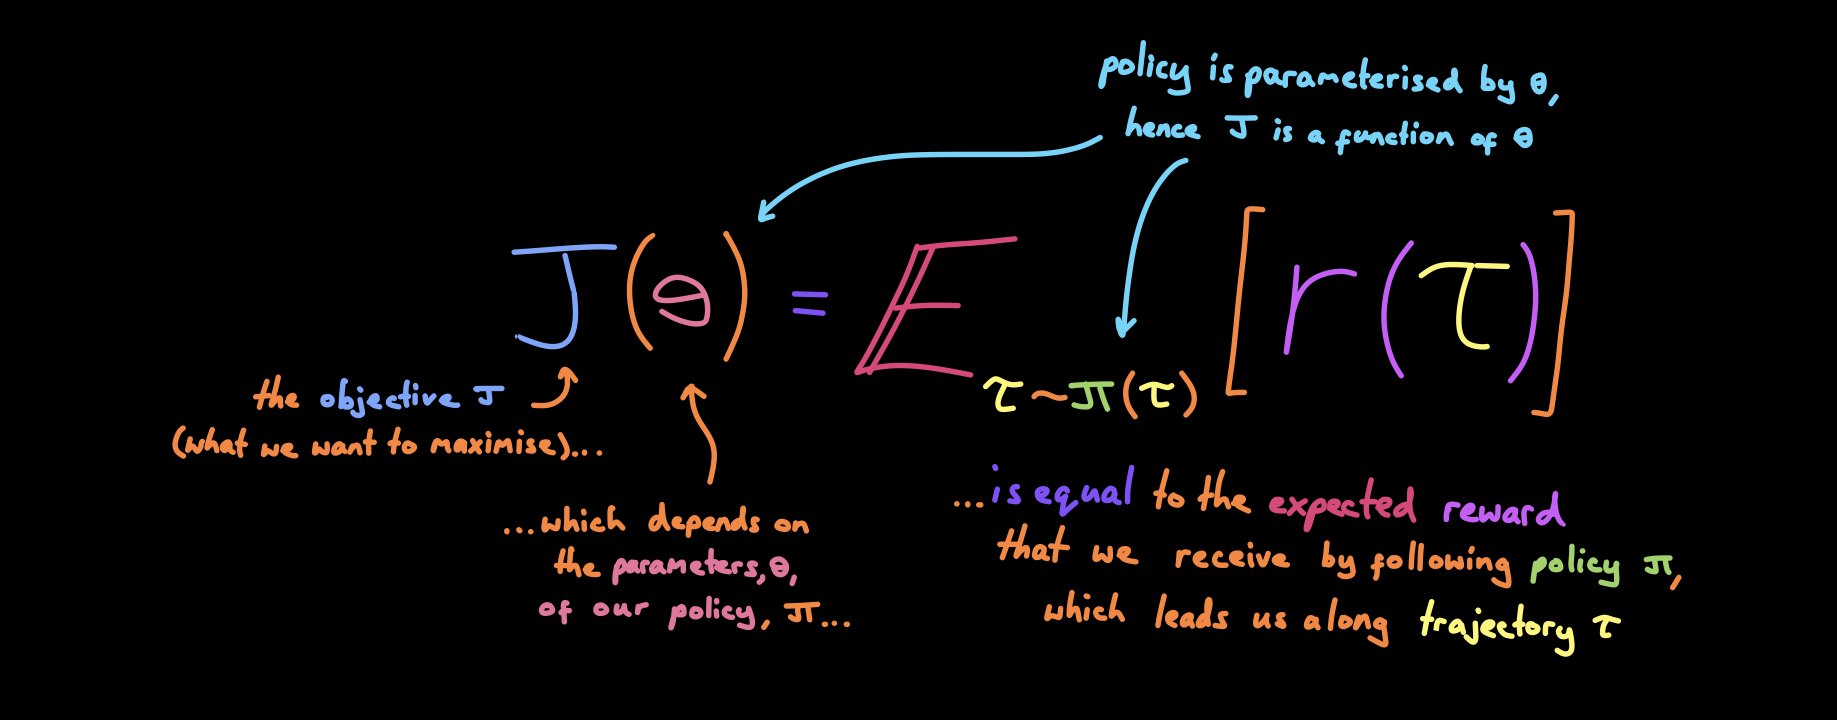 policy is parameterised by θ,
hence J is a function of θ
J(θ) = E τ~π(τ) [r(τ)]
the objective J
(what we want to maximise)...
...which depends on
the parameters, θ,
of our policy, π...
...is equal to the expected reward
that we receive by following policy π,
which leads us along trajectory τ